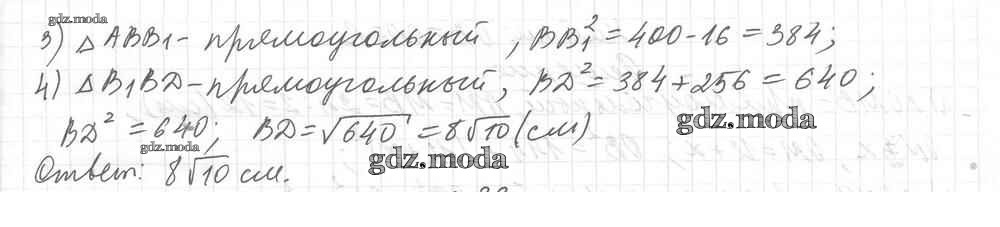 gdz.moda
3) △ABB₁ - прямоугольный, BB₁² = 400 - 16 = 384;
4) △B₁BD - прямоугольный, BD² = 384 + 256 = 640;
BD² = 640; BD = √640 = 8√10 (см)
gdz.moda
gdz.moda
gdz.moda
Ответ: 8√10 см.